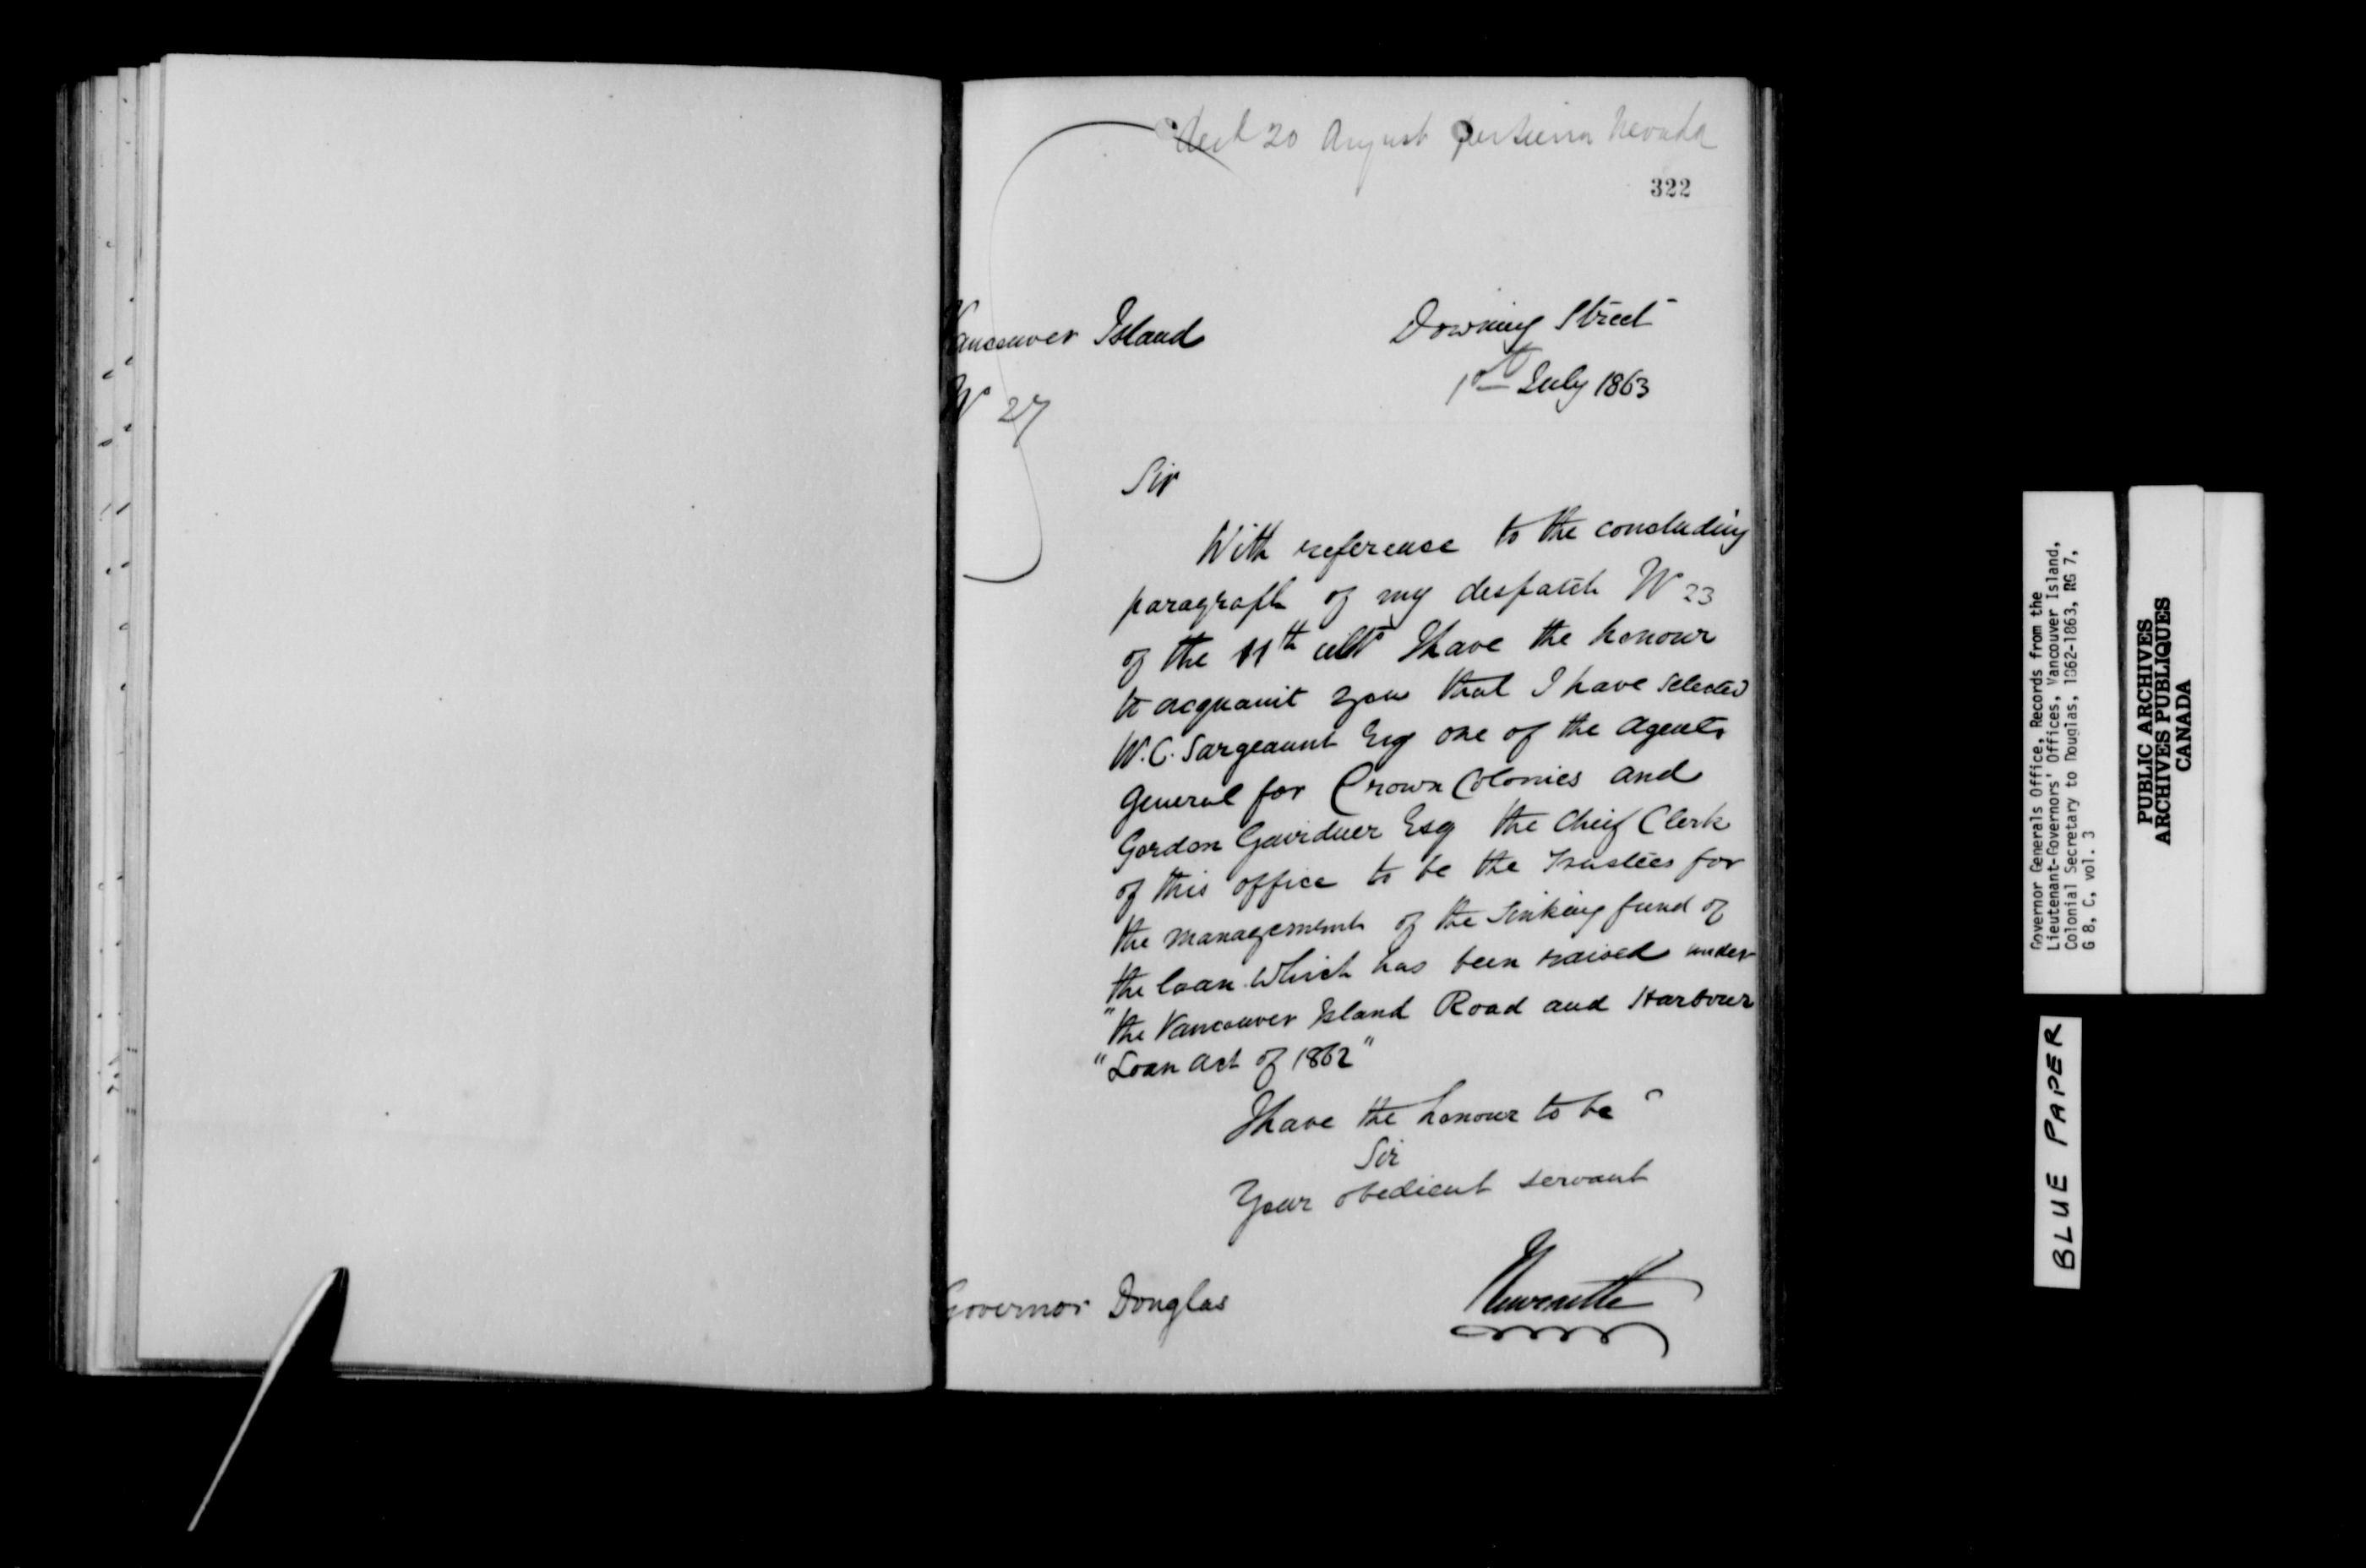 Recd 20 August per Sierra Nevada
322
Vancouver Island
Downing Street
No 27
1st July 1863
Sir
With reference to the concluding
paragraph of my despatch No 23
of the 11th ulto I have the honour
to acquaint you that I have selected
W.C. Sargeaunt Esq one of the Agents
General for Crown Colonies and
Gordon Gairdner Esq the Chief Clerk
of this office to be the Trustees for
the management of the Sinking fund of
the loan which has been raised under
"the Vancouver Island Road and Harbour
"Loan Act of 1862"
I have the honour to be
Sir
Your obedient servant
Newcastle
Governor Douglas
Governor Generals Office, Records from the
Lieutenant-Governors' Offices, Vancouver Island,
Colonial Secretary to Douglas, 1862-1863, RG 7,
G 8, C, vol. 3
PUBLIC ARCHIVES
ARCHIVES PUBLIQUES
CANADA
BLUE PAPER